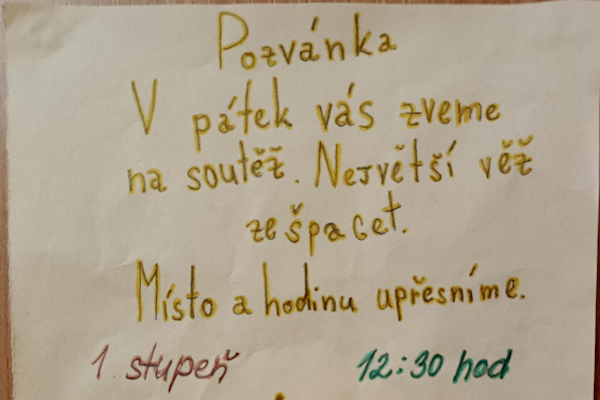 Pozvánka
V pátek vás zveme
na soutěž. Největší věž
ze špacet.
Místo a hodinu upřesníme.
1. stupeň 12:30 hod